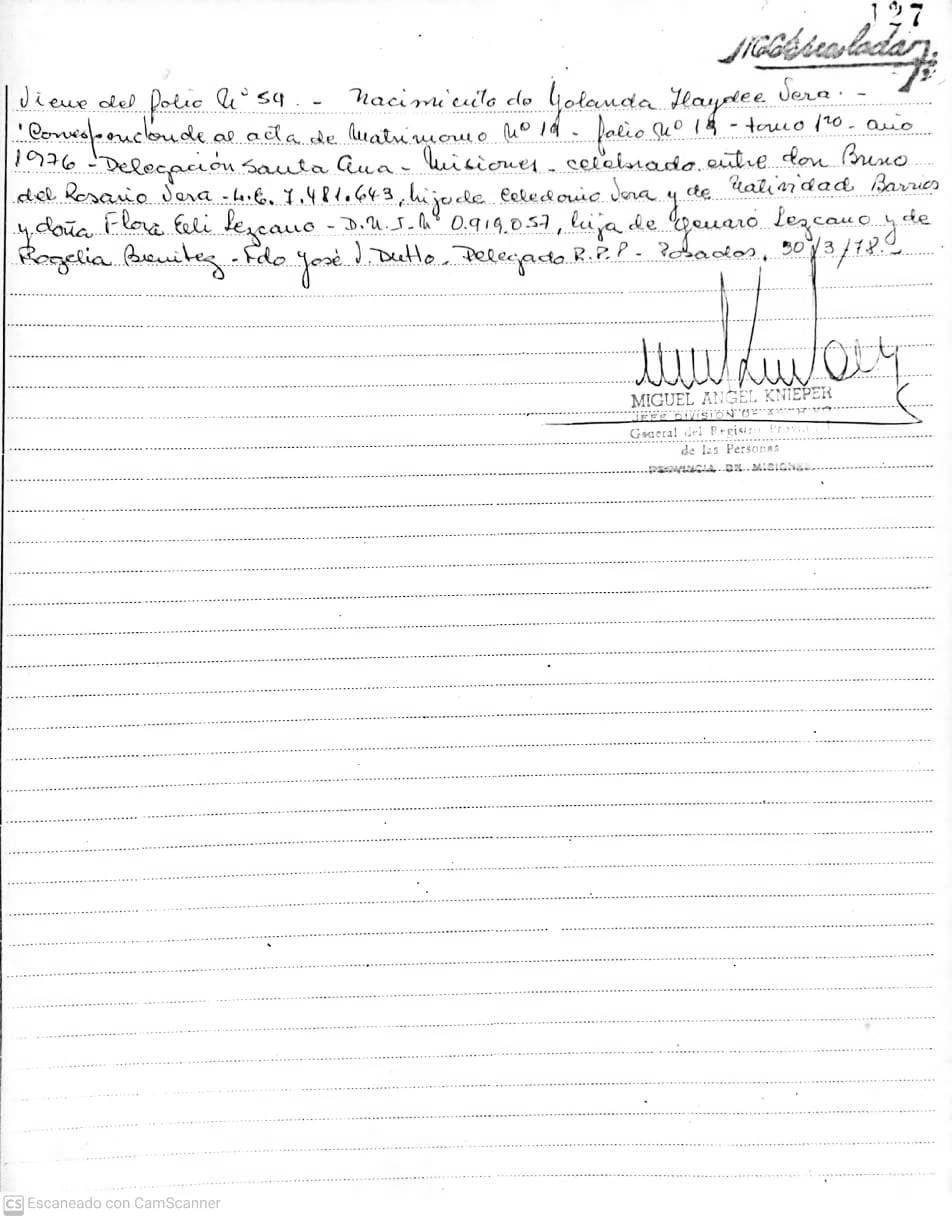 127
Viene del folio Nº 59. - Nacimiento de Yolanda Haydee Vera. -
"Correspondiende al acta de Matrimonio Nº 19 - folio Nº 19 - tomo 1ro - año
1976 - Delegación Santa Ana - Misiones - celebrado entre don Bruno
del Rosario Vera - L.E. 7.481.643, hijo de Celedonio Vera y de Natividad Barrios
y doña Flora Eli Lezcano - D.N.I. Nº 0.919.057, hija de Genaro Lezcano y de
Rogelia Benitez - Fdo José J. Dutto - Delegado R.P.P - Posadas, 30/3/78. -
MIGUEL ANGEL KNIEPER
JEFE DIVISION
General del Registro Provincial
de las Personas
PROVINCIA DE MISIONES
CS Escaneado con CamScanner